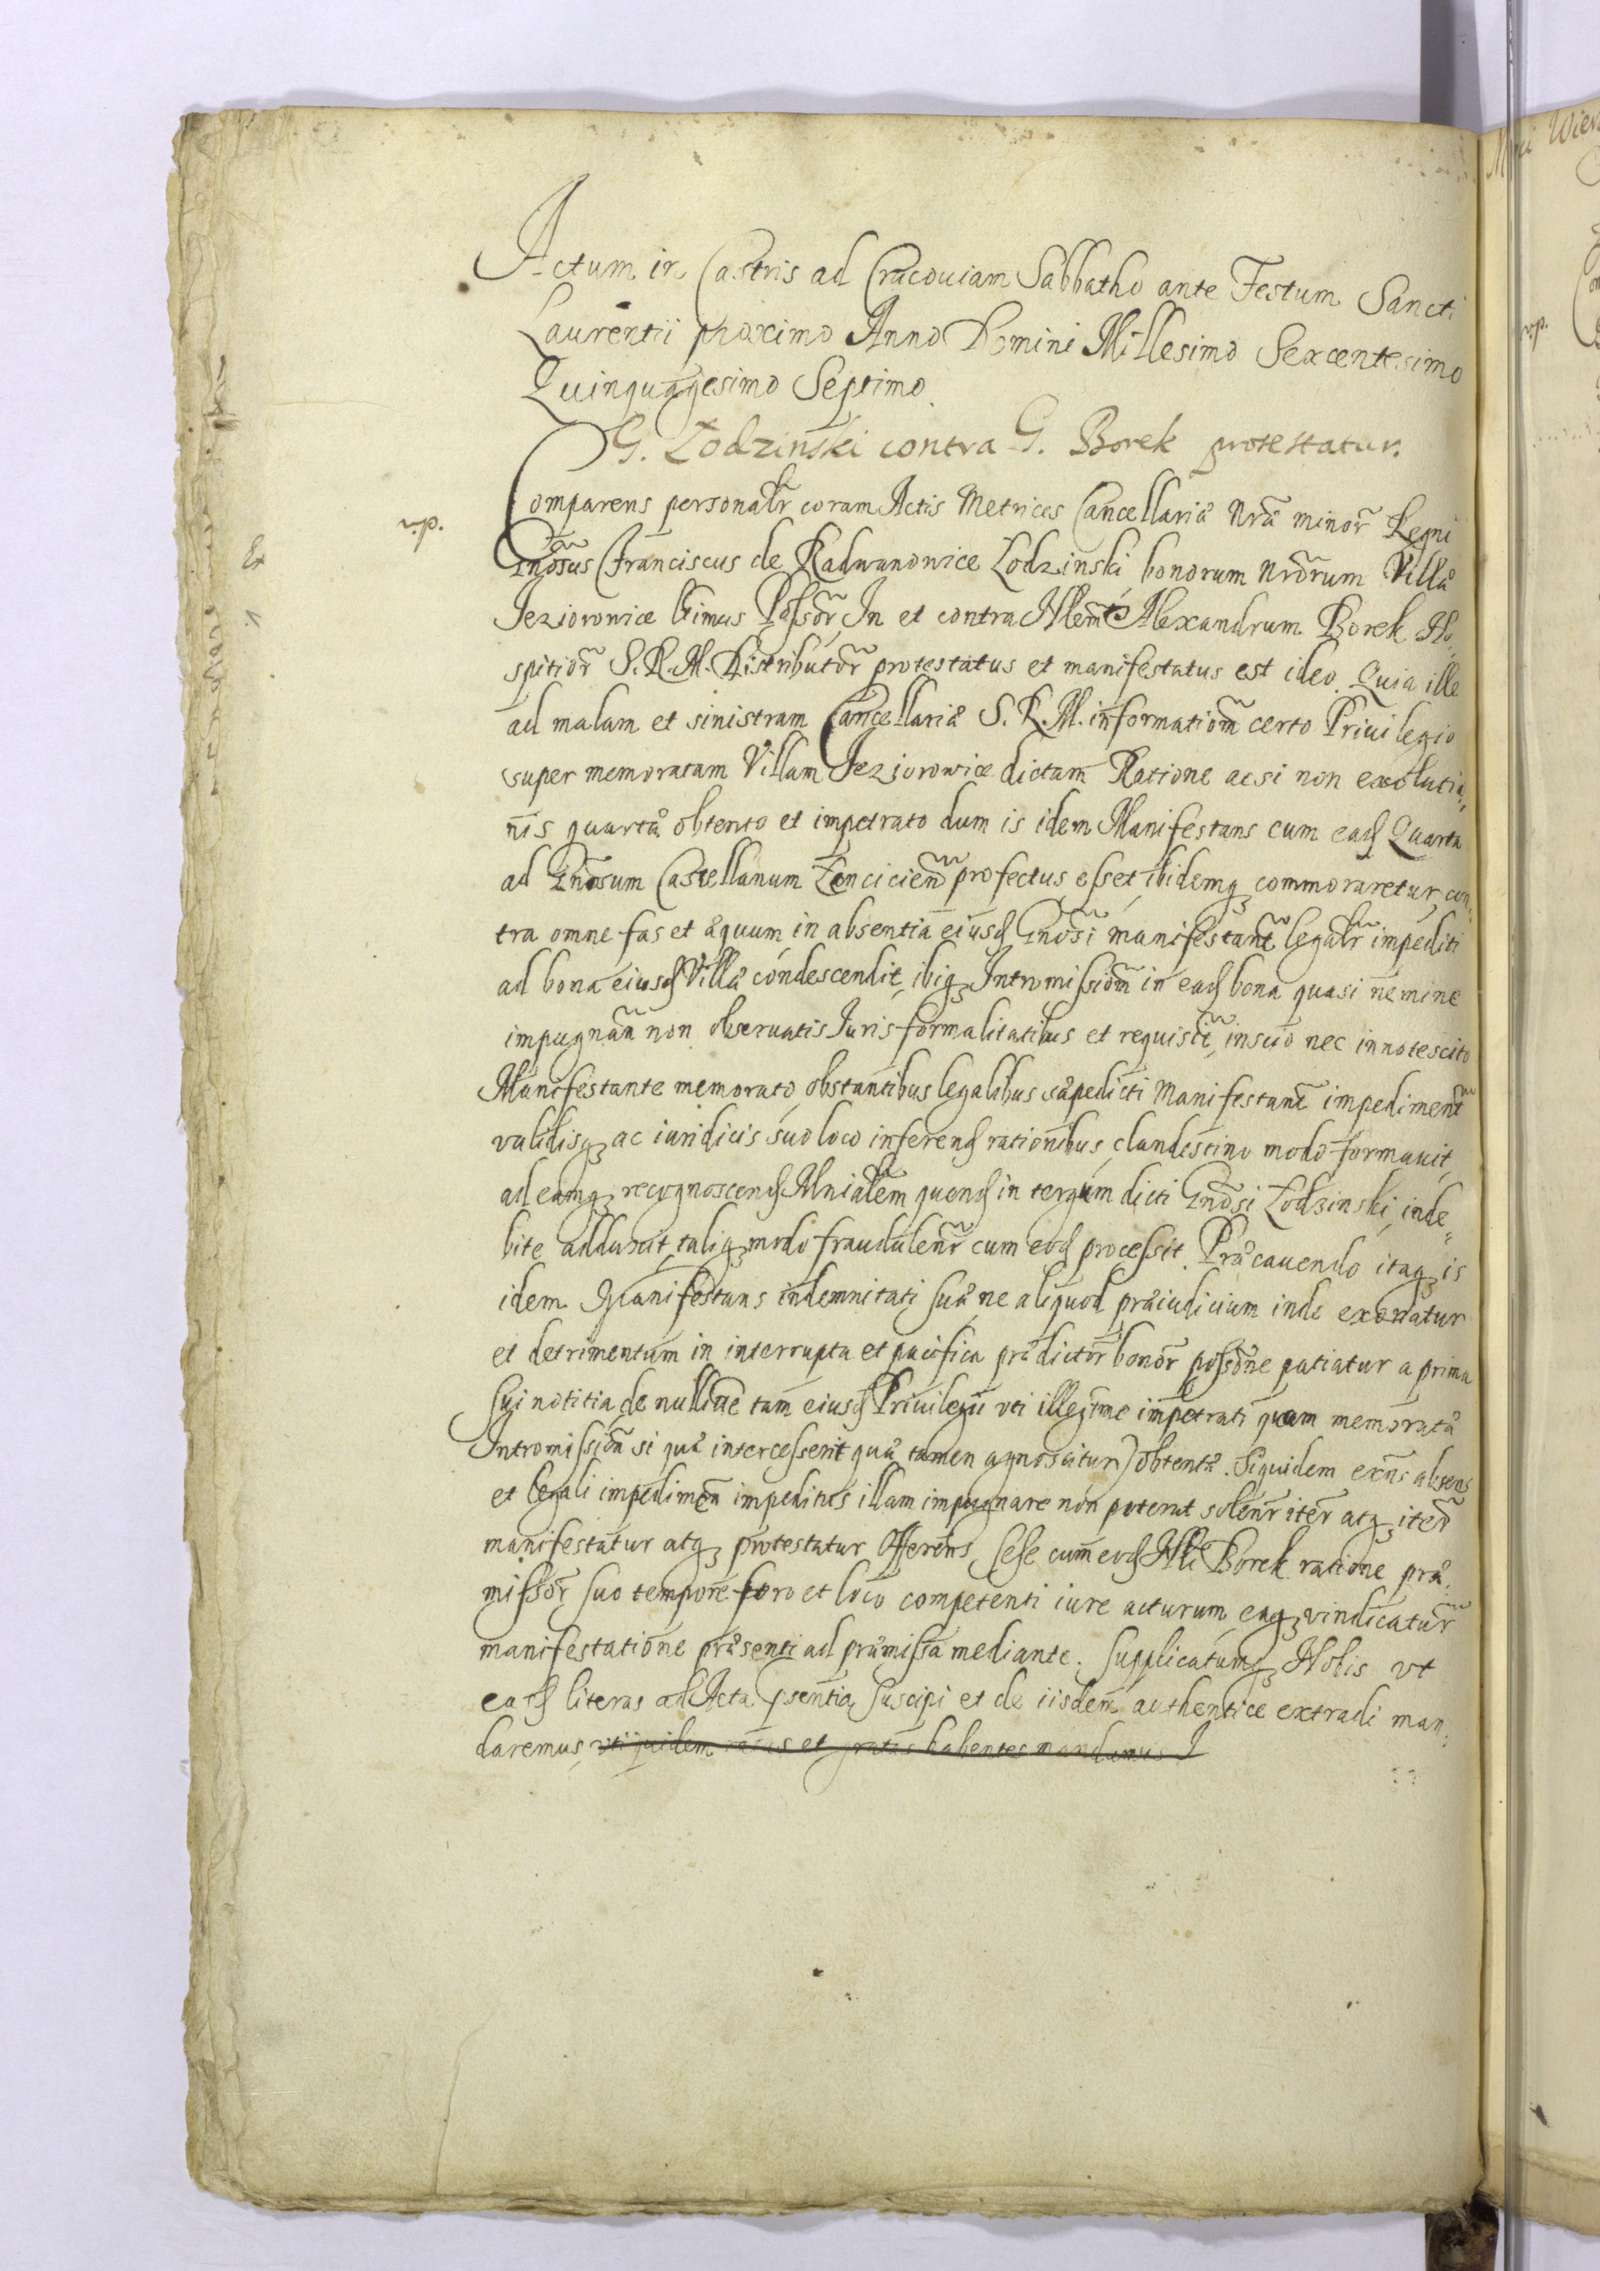 Actum in Castris ad Cracoviam Sabbatho ante Festum Sancti
Laurentii proximo Anno Domini Millesimo Sexcentesimo
Quinquagesimo Septimo.
G. Łodzinski contra G. Borek protestatur.
Comparens personalr̃ coram Actis Metrices Cancellariæ Nræ̃ minor̃ Regni
Gnõsus Franciscus de Radwanowice Łodzinski bonorum Nrõrum Villæ
Jeziorowice ltimus Possõr, In et contra Nlem̃ Alexandrum Borek Ho„
spitior̃ S. R. M. Distributor̃ protestatus et manifestatus est ideo. Quia ille
ad malam et sinistram Cancellariæ S. R. M. informatiom̃ certo Privilegio
super memoratam Villam Jeziorowice dictam Ratione acsi non exolutio„
nis quartæ obtento et impetrato dum is idem Manifestans cum eadꝫ Quarta
ad Gnõsum Castellanum Łenciciem̃ profectus esset, ibidemqꝫ commoraretur, con„
tra omne fas et æquum in absentia eiusdꝫ Gnõsi manifestant̃ legalr̃ impediti
ad bona eiusdꝫ Villæ condescendit, ibiqꝫ Intromissiom̃ in eadꝫ bona quasi nemine
impugnañ non observatis Juris formalitatibus et requisit̃, inscio nec innotescito
Manifestante memorato, obstantibus legalibus sæpedicti Manifestant̃ impediment̃
validisqꝫ ac iuridicis suo loco inferendꝫ rationibus, clandestino modo formauit,
ad eamqꝫ recognoscendꝫ Mnialem̃ quendꝫ in tergum dicti Gnõsi Łodzinski, inde„
bite adduxit, taliqꝫ modo fraudulenr̃ cum eodꝫ processit. Præcauendo itaqꝫ is
idem Manifestans indemnitati suæ ne aliquod præiudicium inde exoriatur
et detrimentum in interrupta et pacifica prædictor̃ bonor̃ possõne patiatur a prima
sui notitia de nullitate tam eiusdꝫ Privilegii vti illegitime impetrati quam memoratæ
Intromission̄ si quæ intercesserit quæ tamen agnoscitur) obtentæ. Siquidem exñs absens
et legali impedimeñ impeditus illam impugnare non poterat solenr̃ iter̃ atqꝫ iter̃
manifestatur atqꝫ protestatur Offerens sese cum eodꝫ Nli Borek ratione præ„
missor̃ suo tempore foro et loco competenti iure acturum, eaqꝫ vindicatur̃
manifestatione præsenti ad præmissa mediante. Supplicatumqꝫ Nobis vt
easdꝫ literas ad Acta psentia suscipi et de iisdem authentice extradi man„
daremus, vti quidem ratas et gratas habentes mandamus
r.p.
Ex